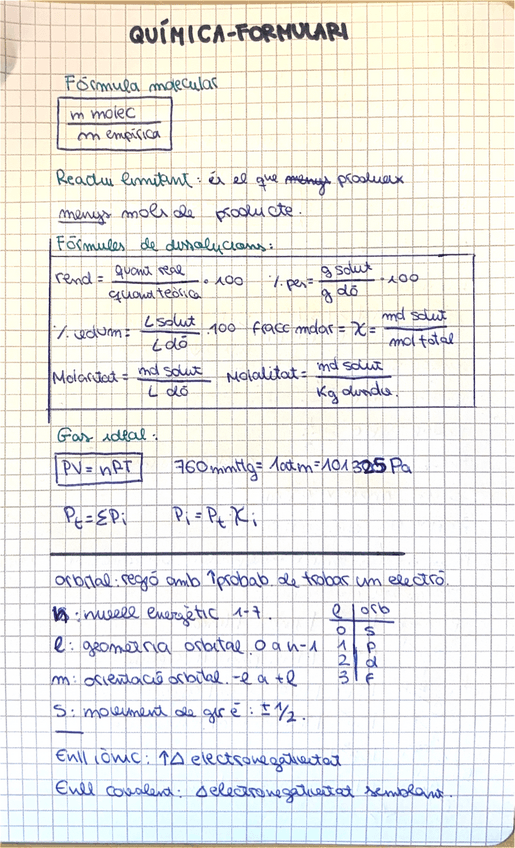 QUÍMICA-FORMULARI
Fórmula molecular
m molec
m empírica
Reactiu limitant: és el que menys produeix
menys mols de producte.
Fórmules de dissolucions:
rend = quant real / quant teòrica · 100 % pes = g solut / g dó · 100
% volum: L solut / L dó · 100 fracc molar = X = mol solut / mol total
Molaritat = mol solut / L dó Molalitat = mol solut / Kg dvnda.
Gas ideal:
PV = nRT 760 mmHg = 1 atm = 101325 Pa
Pt = ΣPi Pi = Pt · Xi
orbital: regió amb ↑probab. de trobar un electró.
n: nivell energètic 1-7. l orb
0 s
l: geometria orbital. 0 a n-1 1 p
2 d
m: orientació orbital. -l a +l 3 f
S: moviment de gir é: ± 1/2.
Enll iònic: ↑Δ electronegativitat
Enll covalent: Δ electronegativitat semblant.